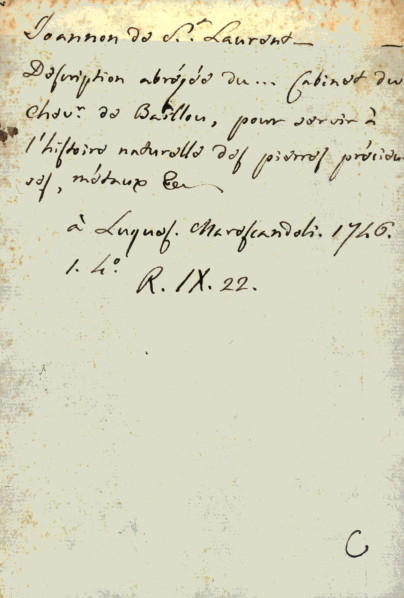 Joannon de S.ᵗ Laurent —
Description abrégée du... Cabinet du
Chev.ʳ de Baillou, pour servir à
l'histoire naturelle des pierres précieu-
ses, métaux &c
à Luques. Marescandoli. 1746.
1. 4.º
R. IX. 22.
C